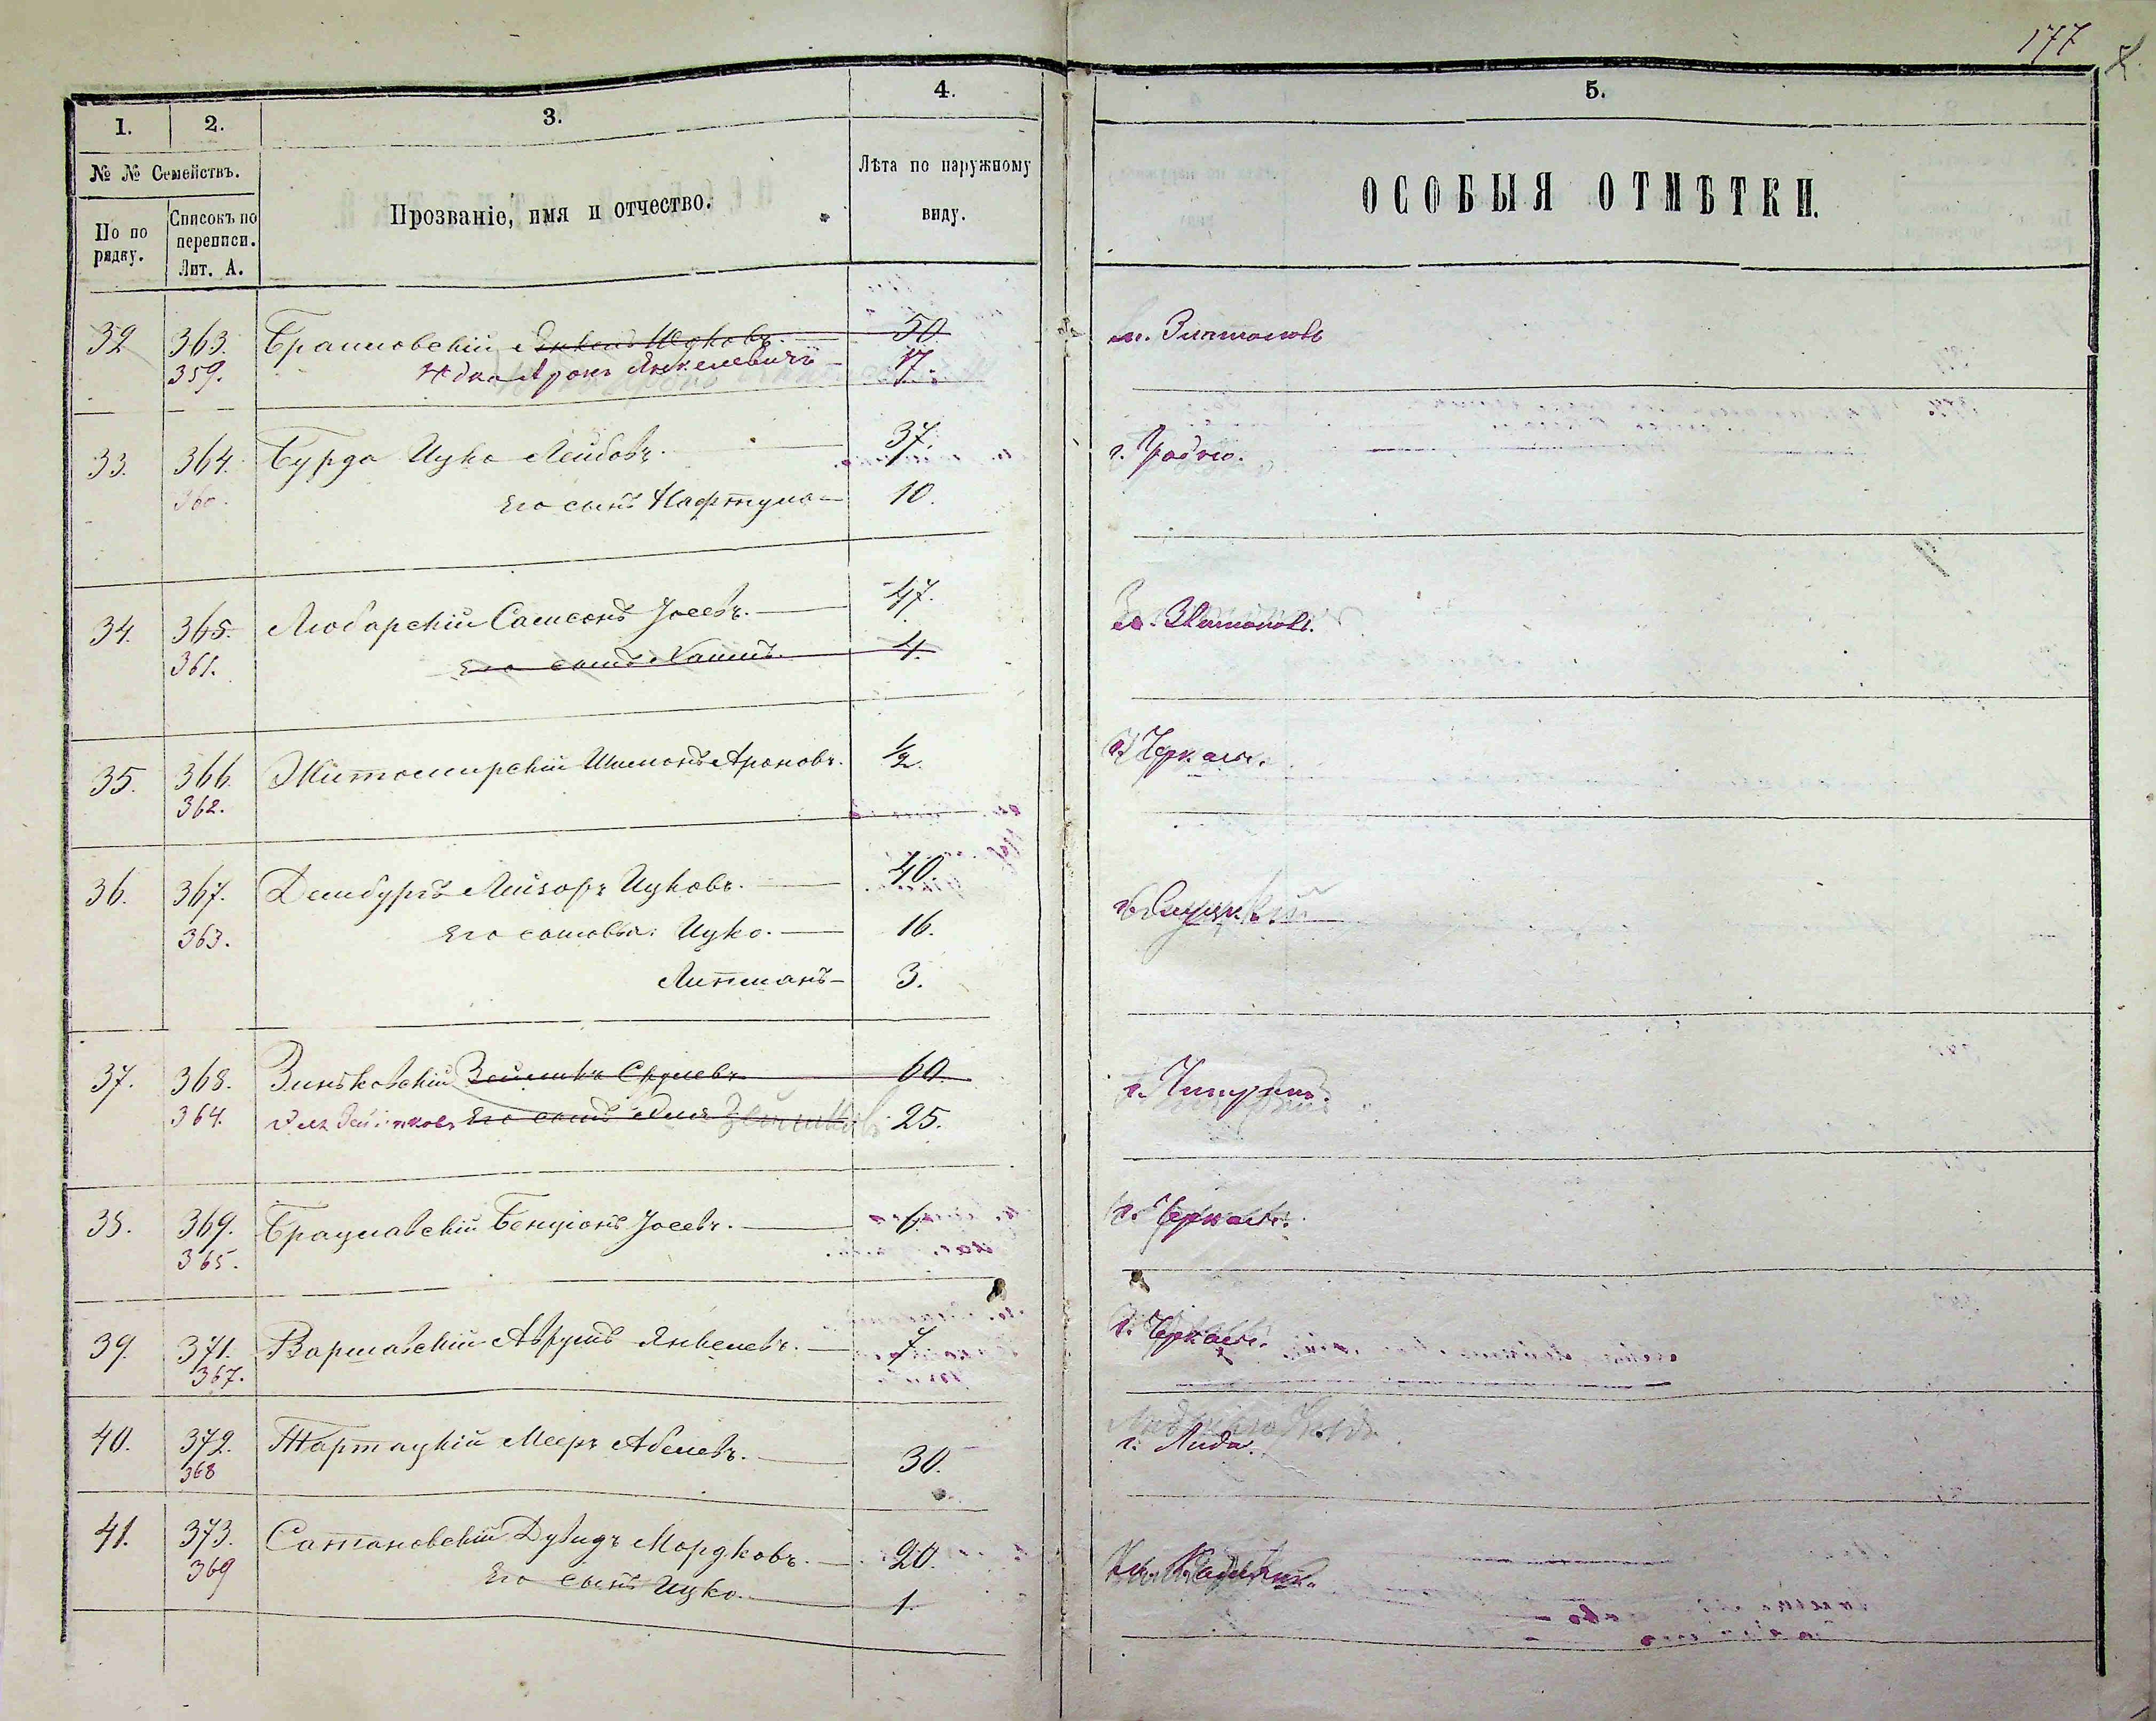 177
1.
2.
3.
4.
5.
№ № Семействъ.
По по
рядку.
Списокъ по
переписи.
Лит. А.
Прозваніе, имя и отчество.
Лѣта по наружному
виду.
ОСОБЫЯ ОТМѢТКИ.
32 363. Янкель Ицковъ. 50. м. Златополь
359. Аронъ Янкелевичъ 17.
33. 364. Бурда Ицко Лейбовъ. 37. г.
360. Его сынъ Нафтула 10.
34. 365. Любарскій Самсонъ Іосевъ. 47. м. Златополь.
361. Его сынъ 4.
35. 366. Житомирскій Шимонъ Ароновъ. 1/2. г. Черкасы.
362.
36. 367. Дембургъ Лейзоръ Ицковъ. 40.
363. Его сыновья: Ицко. 16.
Липманъ 3.
37. 368. Зиньковскій Зейликъ Сруlевъ 60. г. Чигиринъ.
364. Зейликовъ Его сынъ Зейликовъ 25.
38. 369. Брацлавскій Бенціонъ Іосевъ. 6. г. Черкасы.
365.
39. 371. Варшавскій Аврумъ Янкелевъ. 7. г. Черкасы.
367.
40. 372. Тартацкій Мееръ Абелевъ. 30. г. Лида.
368
41. 373. Сатановскій Дувидъ Мордковъ. 20.
369 Его сынъ Ицко. 1.